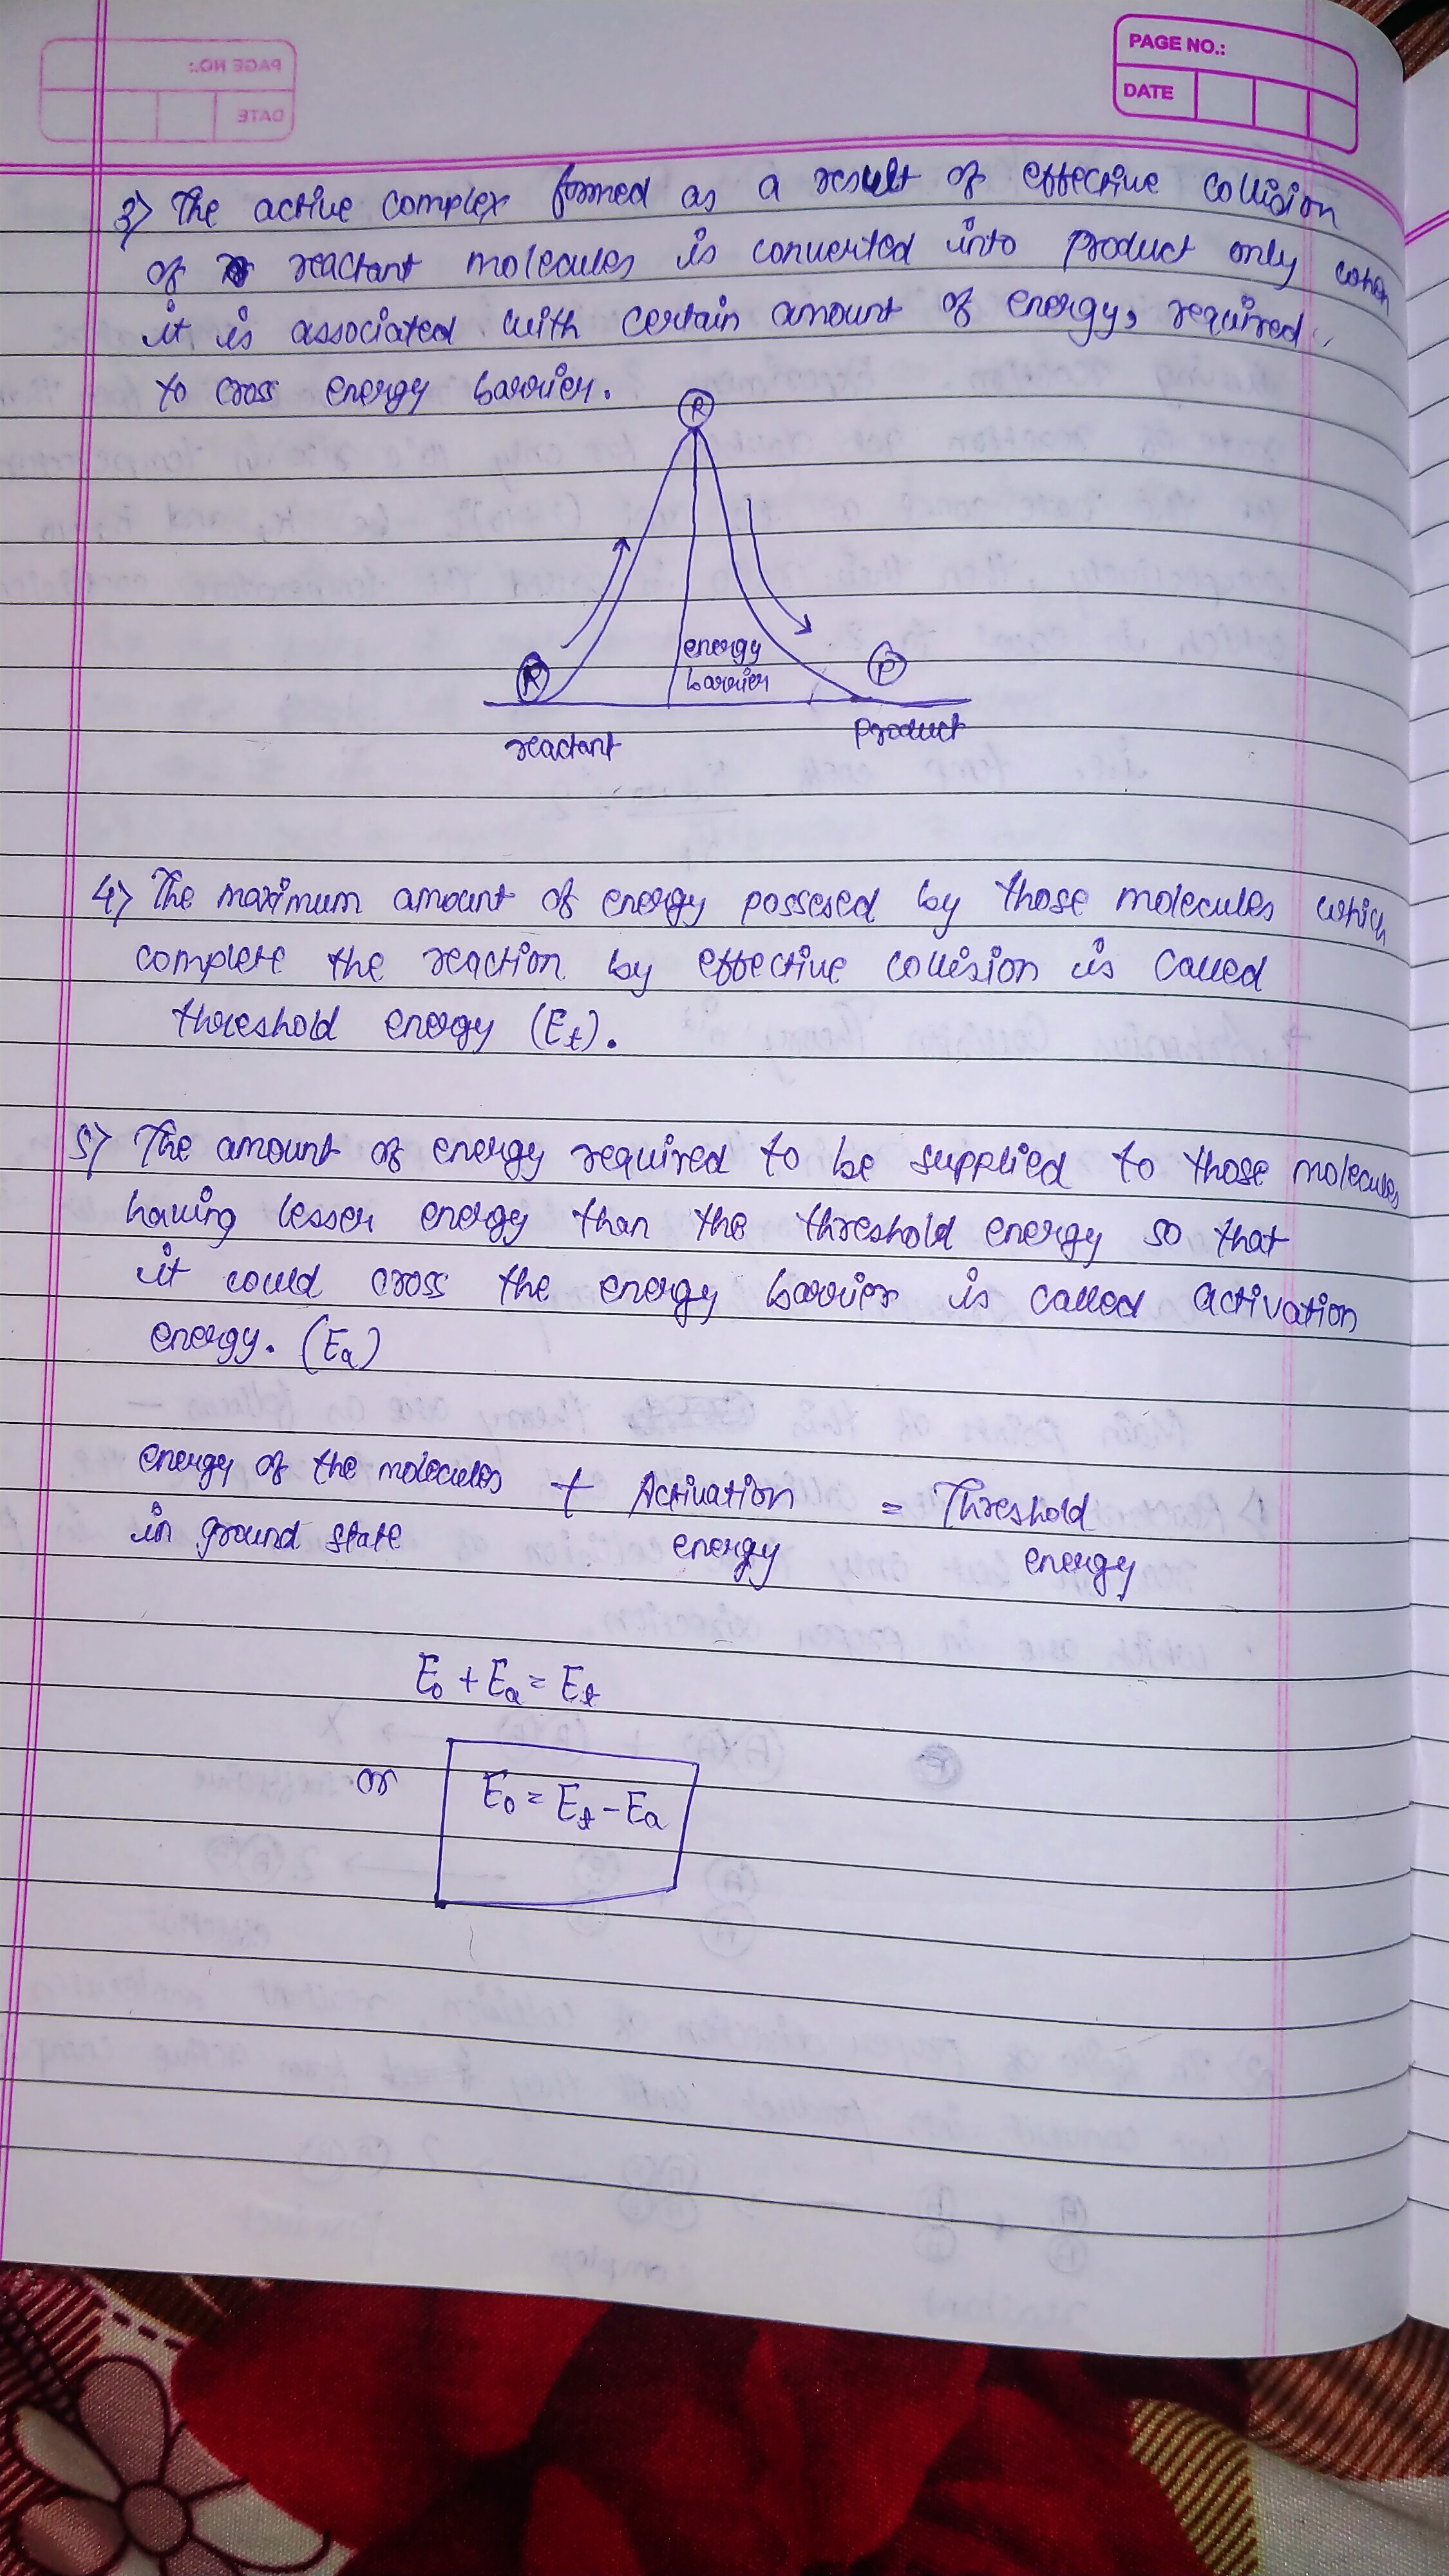 PAGE NO.:
DATE
3) The active complex formed as a result of effective collision
of reactant molecules is converted into product only when
it is associated with certain amount of energy, required
to cross energy barrier.
R
R
energy
barrier
P
reactant
product
4) The maximum amount of energy possesed by those molecules which
complete the reaction by effective collision is called
threshold energy (Et).
5) The amount of energy required to be supplied to those molecules
having lesser energy than the threshold energy so that
it could cross the energy barrier is called activation
energy. (Ea)
energy of the molecules + Activation = Threshold
in ground state energy energy
E0 + Ea = Et
or E0 = Et - Ea